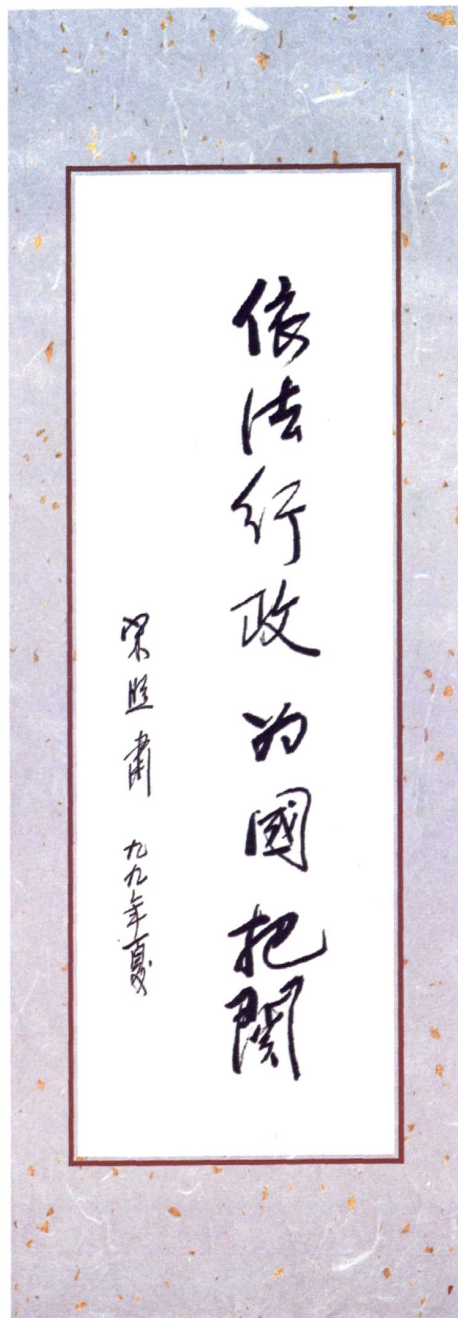 依法行政 为國把関
宋照肃 九九年夏